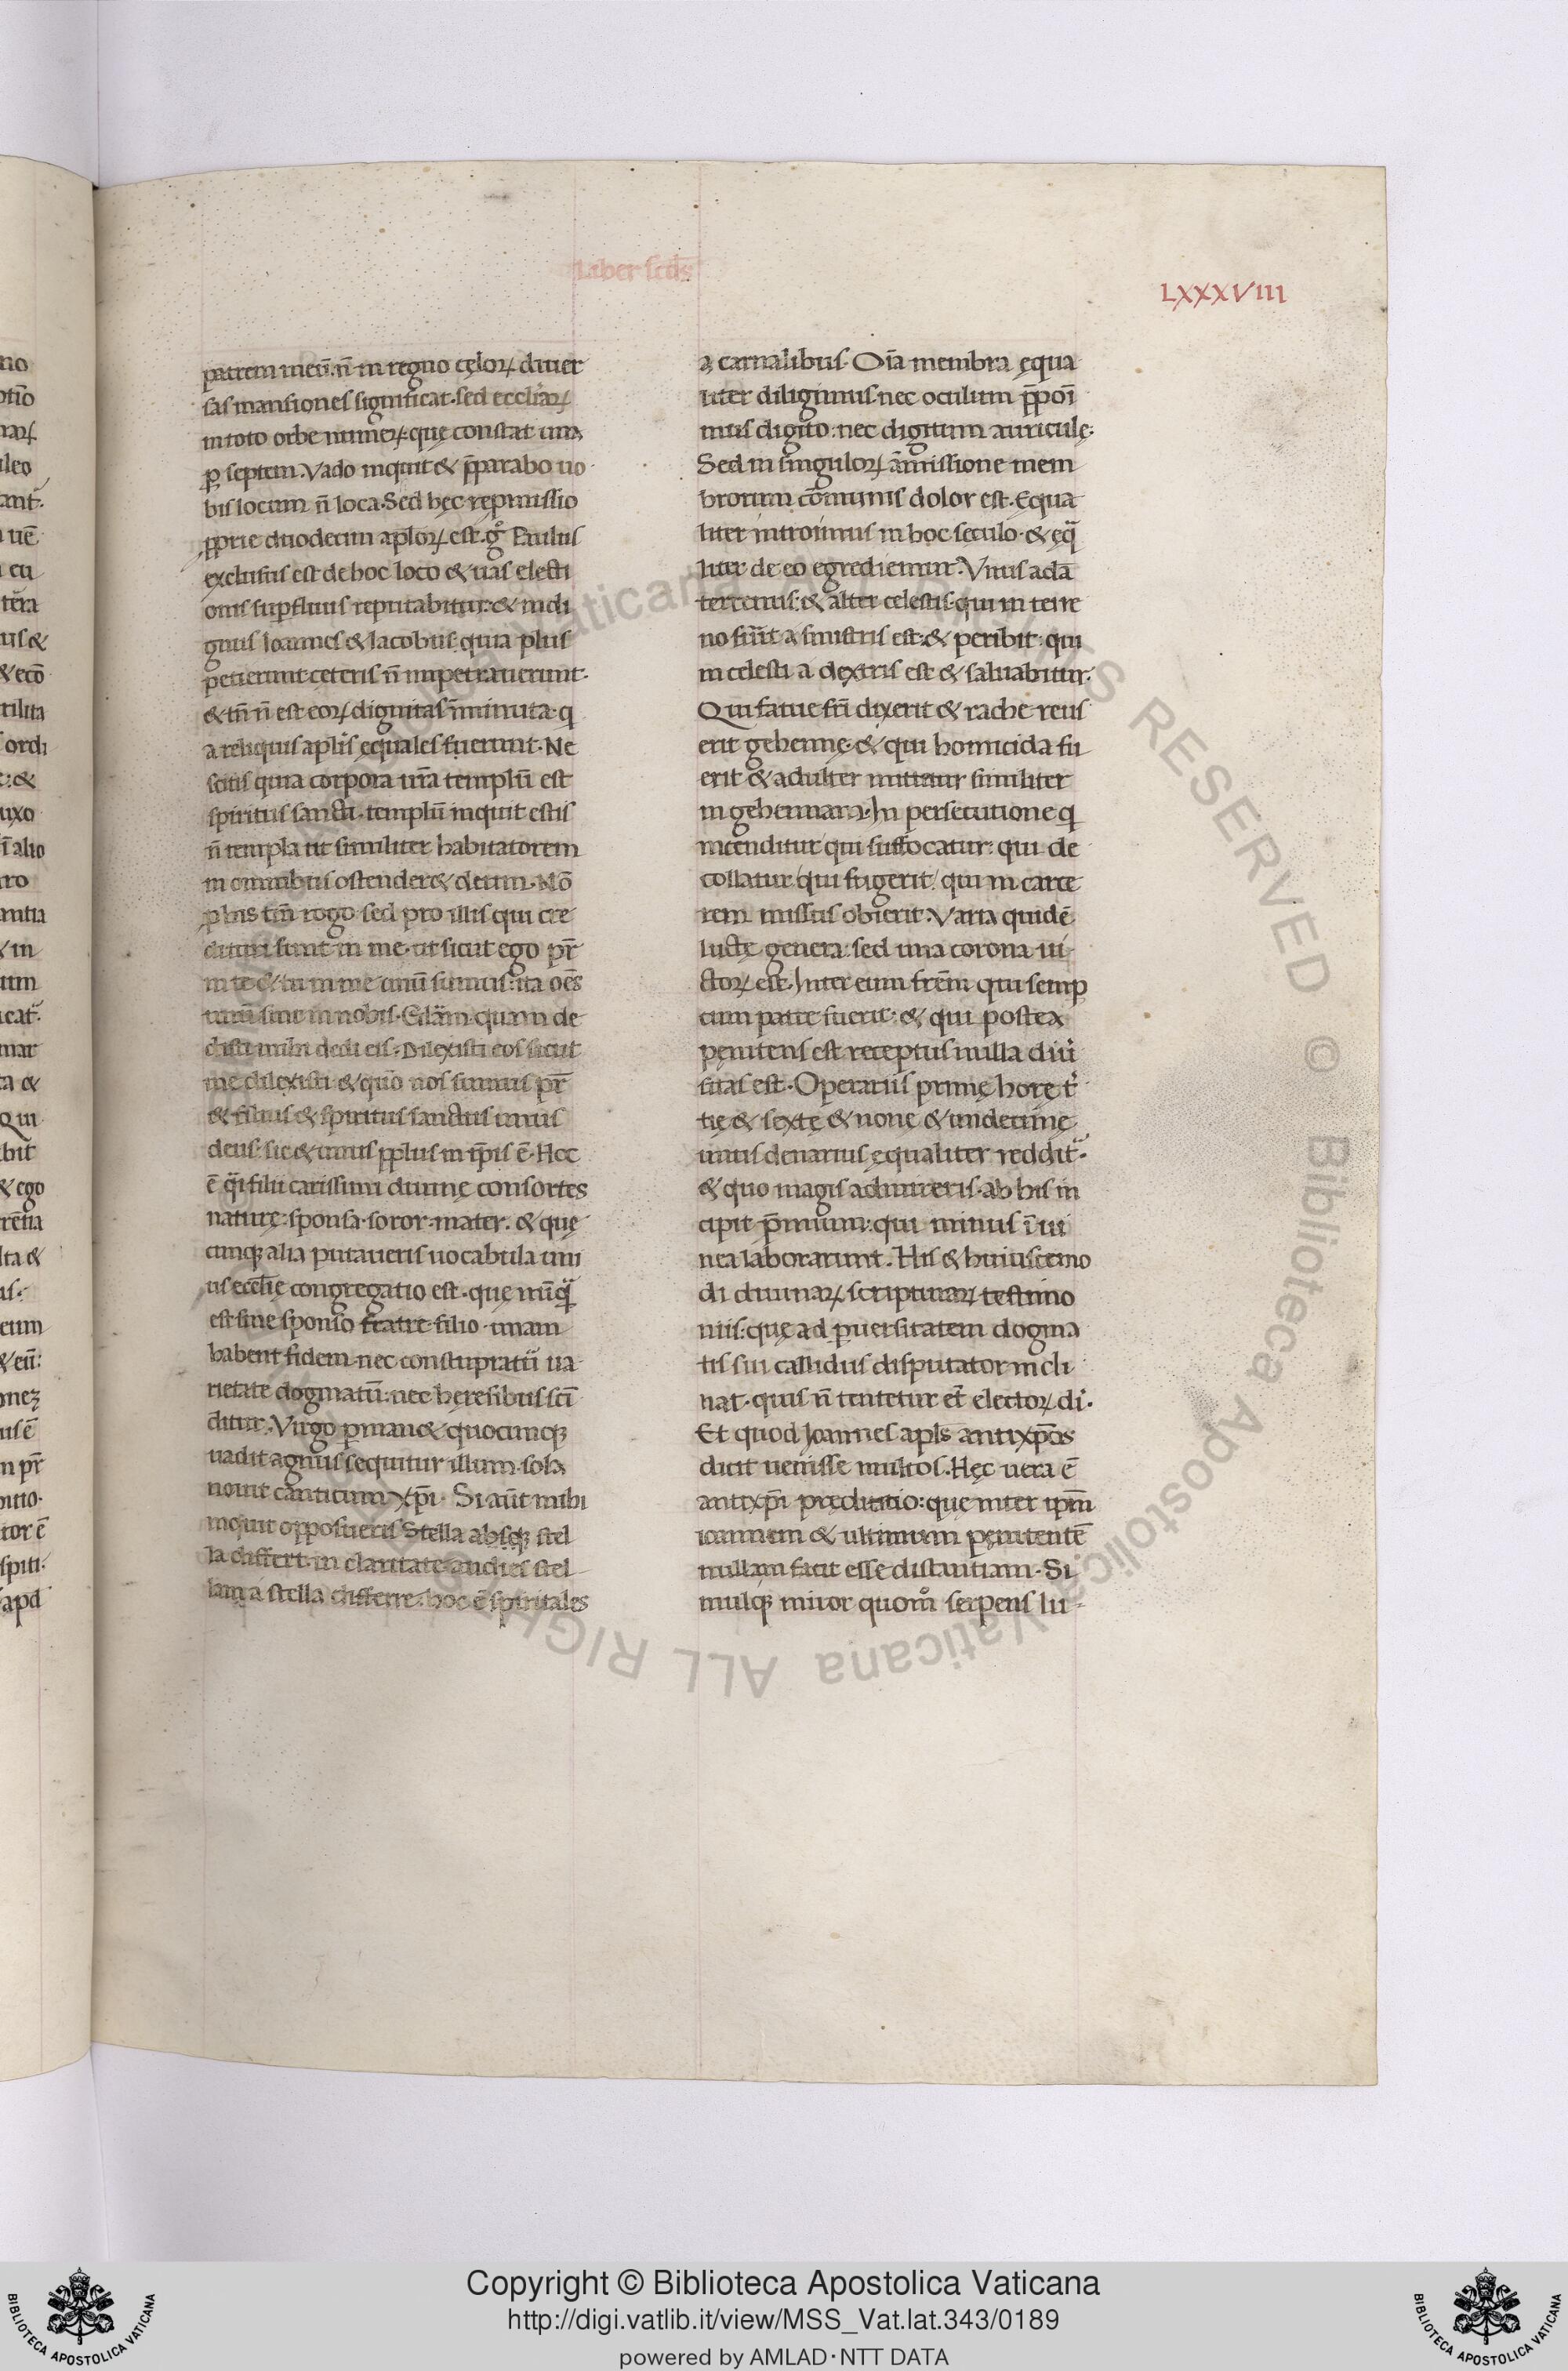 Liber scds
LXXXVIII
patrem meū. n̄ in regno cęloꝝ diuer
sas mansiones significat. sed eccl̄iaꝝ
in toto orbe numeꝝ. que constat una
ꝑ septem. Vado inquit & p̄parabo uo
bis locum n̄ loca. Sed hęc repmissio
ꝓprie duodecim apl̄oꝝ est. gͦ Paulus
exclusus est de hoc loco & uas electi
onis suꝑfluus reputabitur. & indi
gnus Ioannes & Iacobus. quia plus
petierunt. ceteris n̄ impetrauerunt.
& tn̄ n̄ est eoꝝ dignitas īminuta. q
a reliquis apl̄is equales fuerunt. Ne
scitis quia corpora ur̄a templū est
spiritus sancti. templū inquit estis
n̄ templa ut similiter habitatorem
in omnibus ostender& deum. Nō
ꝑ his tm̄ rogo sed pro illis qui cre
dituri sunt in me. ut sicut ego pr̄
in te & tu in me unū sumus: ita oēs
unū sint in nobis. Glām quam de
disti mihi dedi eis. Dilexisti eos sicut
me dilexisti & quō nos sumus pr̄
& filius & spiritus sanctus unus
deus: sic & unus pplus in ip̄is ē. Hoc
ē q̄si filii carissimi diuine consortes
naturę: sponsa. soror. mater. & quę
cunqꝫ alia putaueris uocabula uni
us eccl̄ie congregatio est. quę nūq̄
est sine sponso fratre filio. unam
habent fidem. nec constupratū ua
rietate dogmatū: nec heresibus scī
ditur. Virgo ꝑman& quocunqꝫ
uadit agnus sequitur illum. sola
nouit canticum xp̄i. Si aūt mihi
inquit opposueris Stella absqꝫ stel
la differt in claritate. audies stel
lam a stella differre. hoc ē spiritales
a carnalibus. Oīa membra ęqua
liter diligimus. nec oculum p̄poni
mus digito: nec digitum auriculę.
Sed in singuloꝝ āmissione mem
brorum cōmunis dolor est. Equa
liter introimus in hoc seculo. & eq̄
liter de eo egrediemur. Vnus adā
terrenus: & alter celestis. qui in terre
no fūit a sinistris est: & peribit. qui
in celesti a dextris est & saluabitur.
Qui fatue fr̄i dixerit & rache reus
erit gehenne. & qui homicida fu
erit & adulter mittatur similiter
in gehennam. In persecutione q
incenditur qui suffocatur: qui de
collatur qui fugerit. qui in carce
rem missus obierit. Varia quidē
luctę genera: sed una corona ui
ctoꝝ est. Inter eum frēm qui semꝑ
cum patre fuerit. & qui postea
penitens est receptus nulla diū
sitas est. Operariis prime hore t
tię & sextę & none & undecime
unus denarius equaliter reddit.
& quo magis admireris. ab his in
cipit p̄mium: qui minus ī ui
nea laborarunt. His & huiuscemo
di diuinaꝝ scripturaꝝ testimo
niis: quę ad ꝑuersitatem dogma
tis sui callidus disputator incli
nat. quis n̄ tentetur et̄ electoꝝ di.
Et quod Ioannes apls antixp̄os
dicit uenisse multos. Hęc uera ē
antixp̄i predicatio: que inter ip̄m
ioannem & ultimum penitentē
nullam facit esse distantiam. Si
mulqꝫ miror quom̊ serpens lu
Copyright © Biblioteca Apostolica Vaticana
http://digi.vatlib.it/view/MSS_Vat.lat.343/0189
powered by AMLAD·NTT DATA